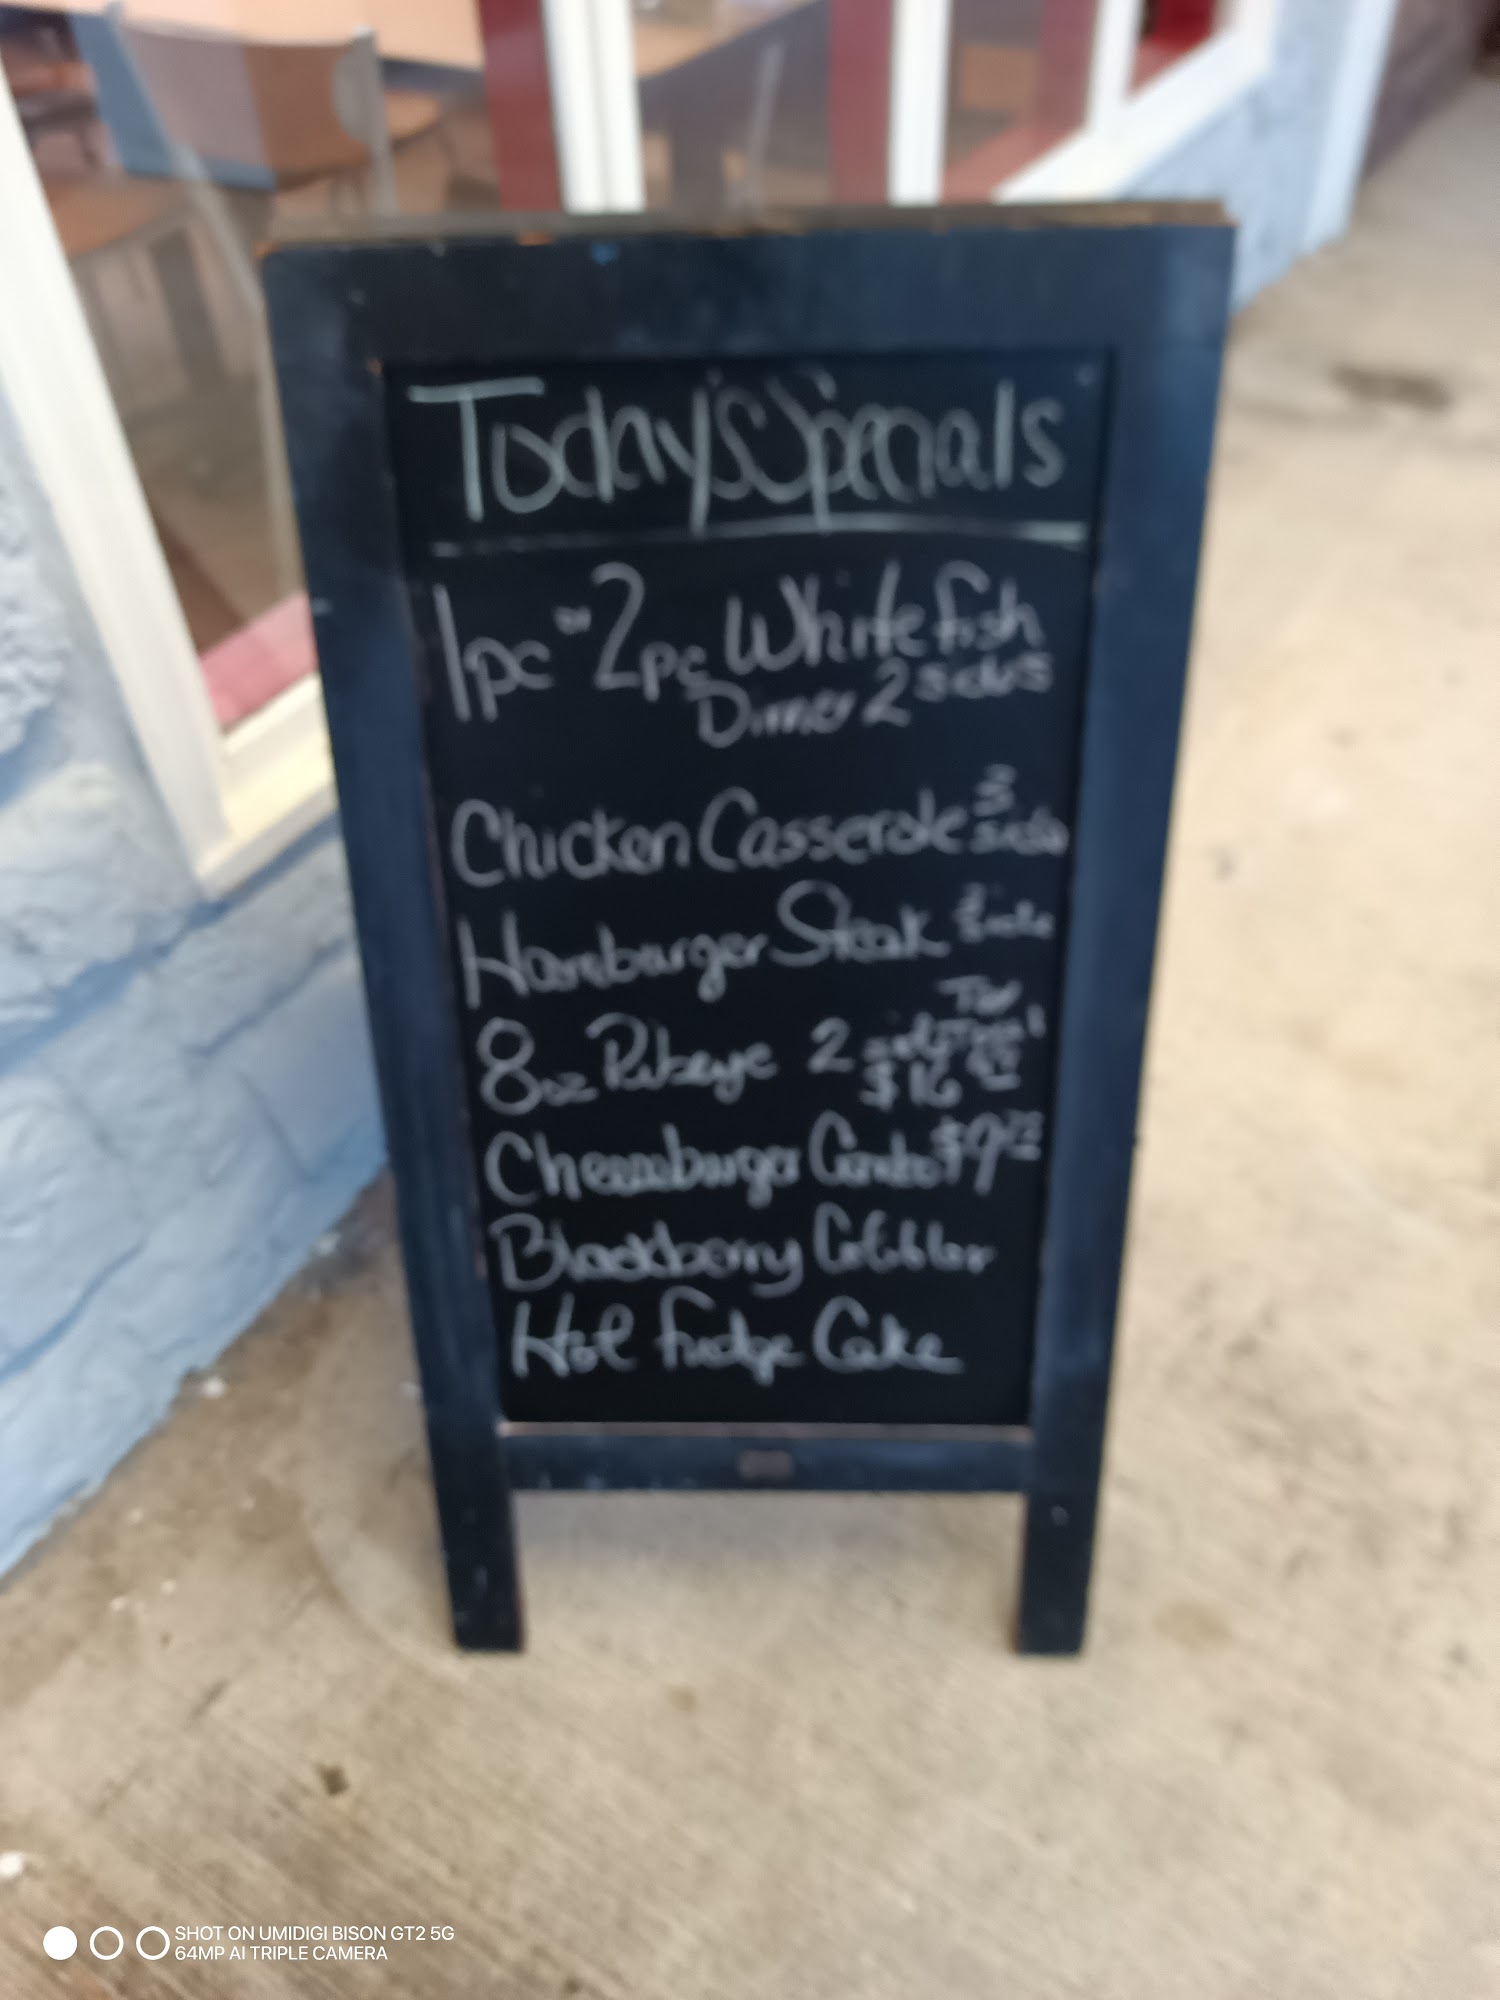 Today's Specials
1pc or 2pc Whitefish
Dinner 2 sides
Chicken Casserole 3 sides
Hamburger Steak
8oz Ribeye 2 $16
Cheeseburger Combo $9
Blackberry Cobbler
Hot Fudge Cake
SHOT ON UMIDIGI BISON GT2 5G
64MP AI TRIPLE CAMERA